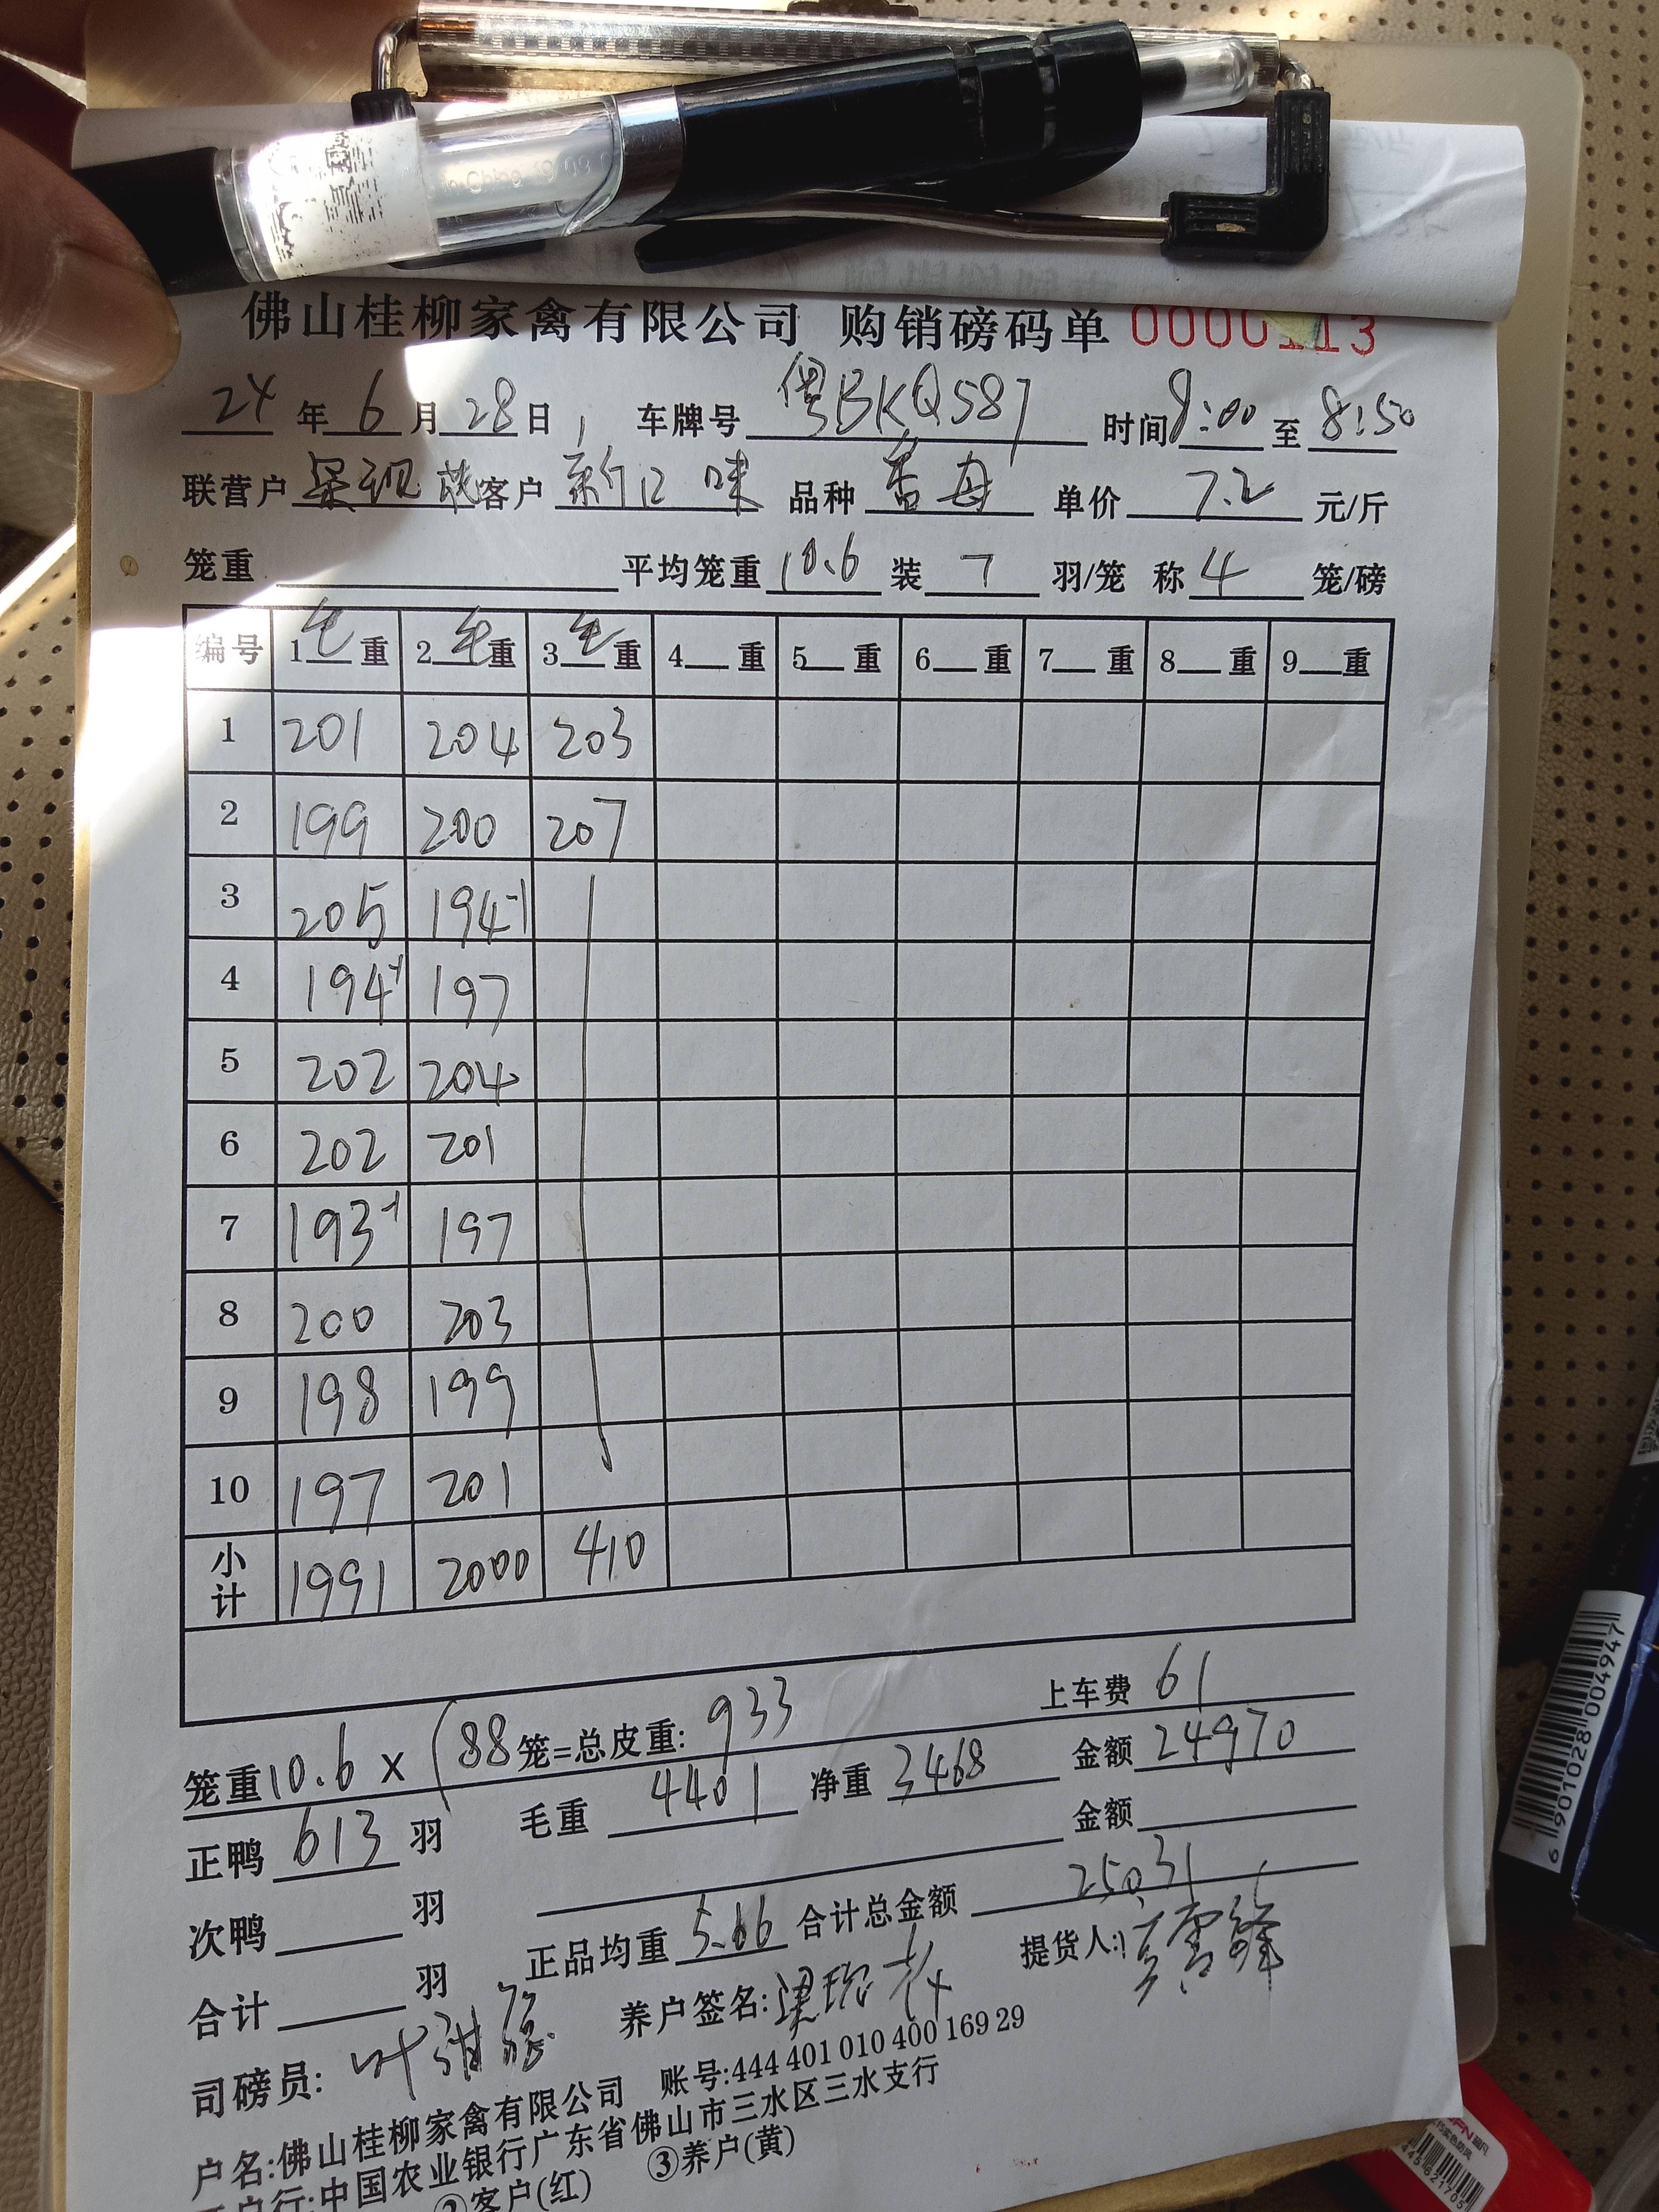 佛山桂柳家禽有限公司 购销磅码单 0000113
24年6月28日 车牌号 粤BKQ587 时间8:00至8:50
联营户 梁现 客户 新口味 品种 香母 单价 7.2 元/斤
笼重 平均笼重 10.6 装 7 羽/笼 称 4 笼/磅
编号 1毛重 2毛重 3毛重 4 重 5 重 6 重 7 重 8 重 9 重
1 201 204 203
2 199 200 207
3 205 194-1
4 194-1 197
5 202 204
6 202 201
7 193-1 197
8 200 203
9 198 199
10 197 201
小计 1991 2000 410
上车费 61
笼重10.6×(88笼=总皮重: 933
正鸭 613 羽 毛重 4401 净重 3468 金额 24970
次鸭 羽 金额
合计 羽 正品均重 5.66 合计总金额 25031
司磅员: 叶 养户签名: 梁现 提货人:
户名:佛山桂柳家禽有限公司 账号:444 401 010 400 169 29
户行:中国农业银行广东省佛山市三水区三水支行
②客户(红) ③养户(黄)
6 901028 004947